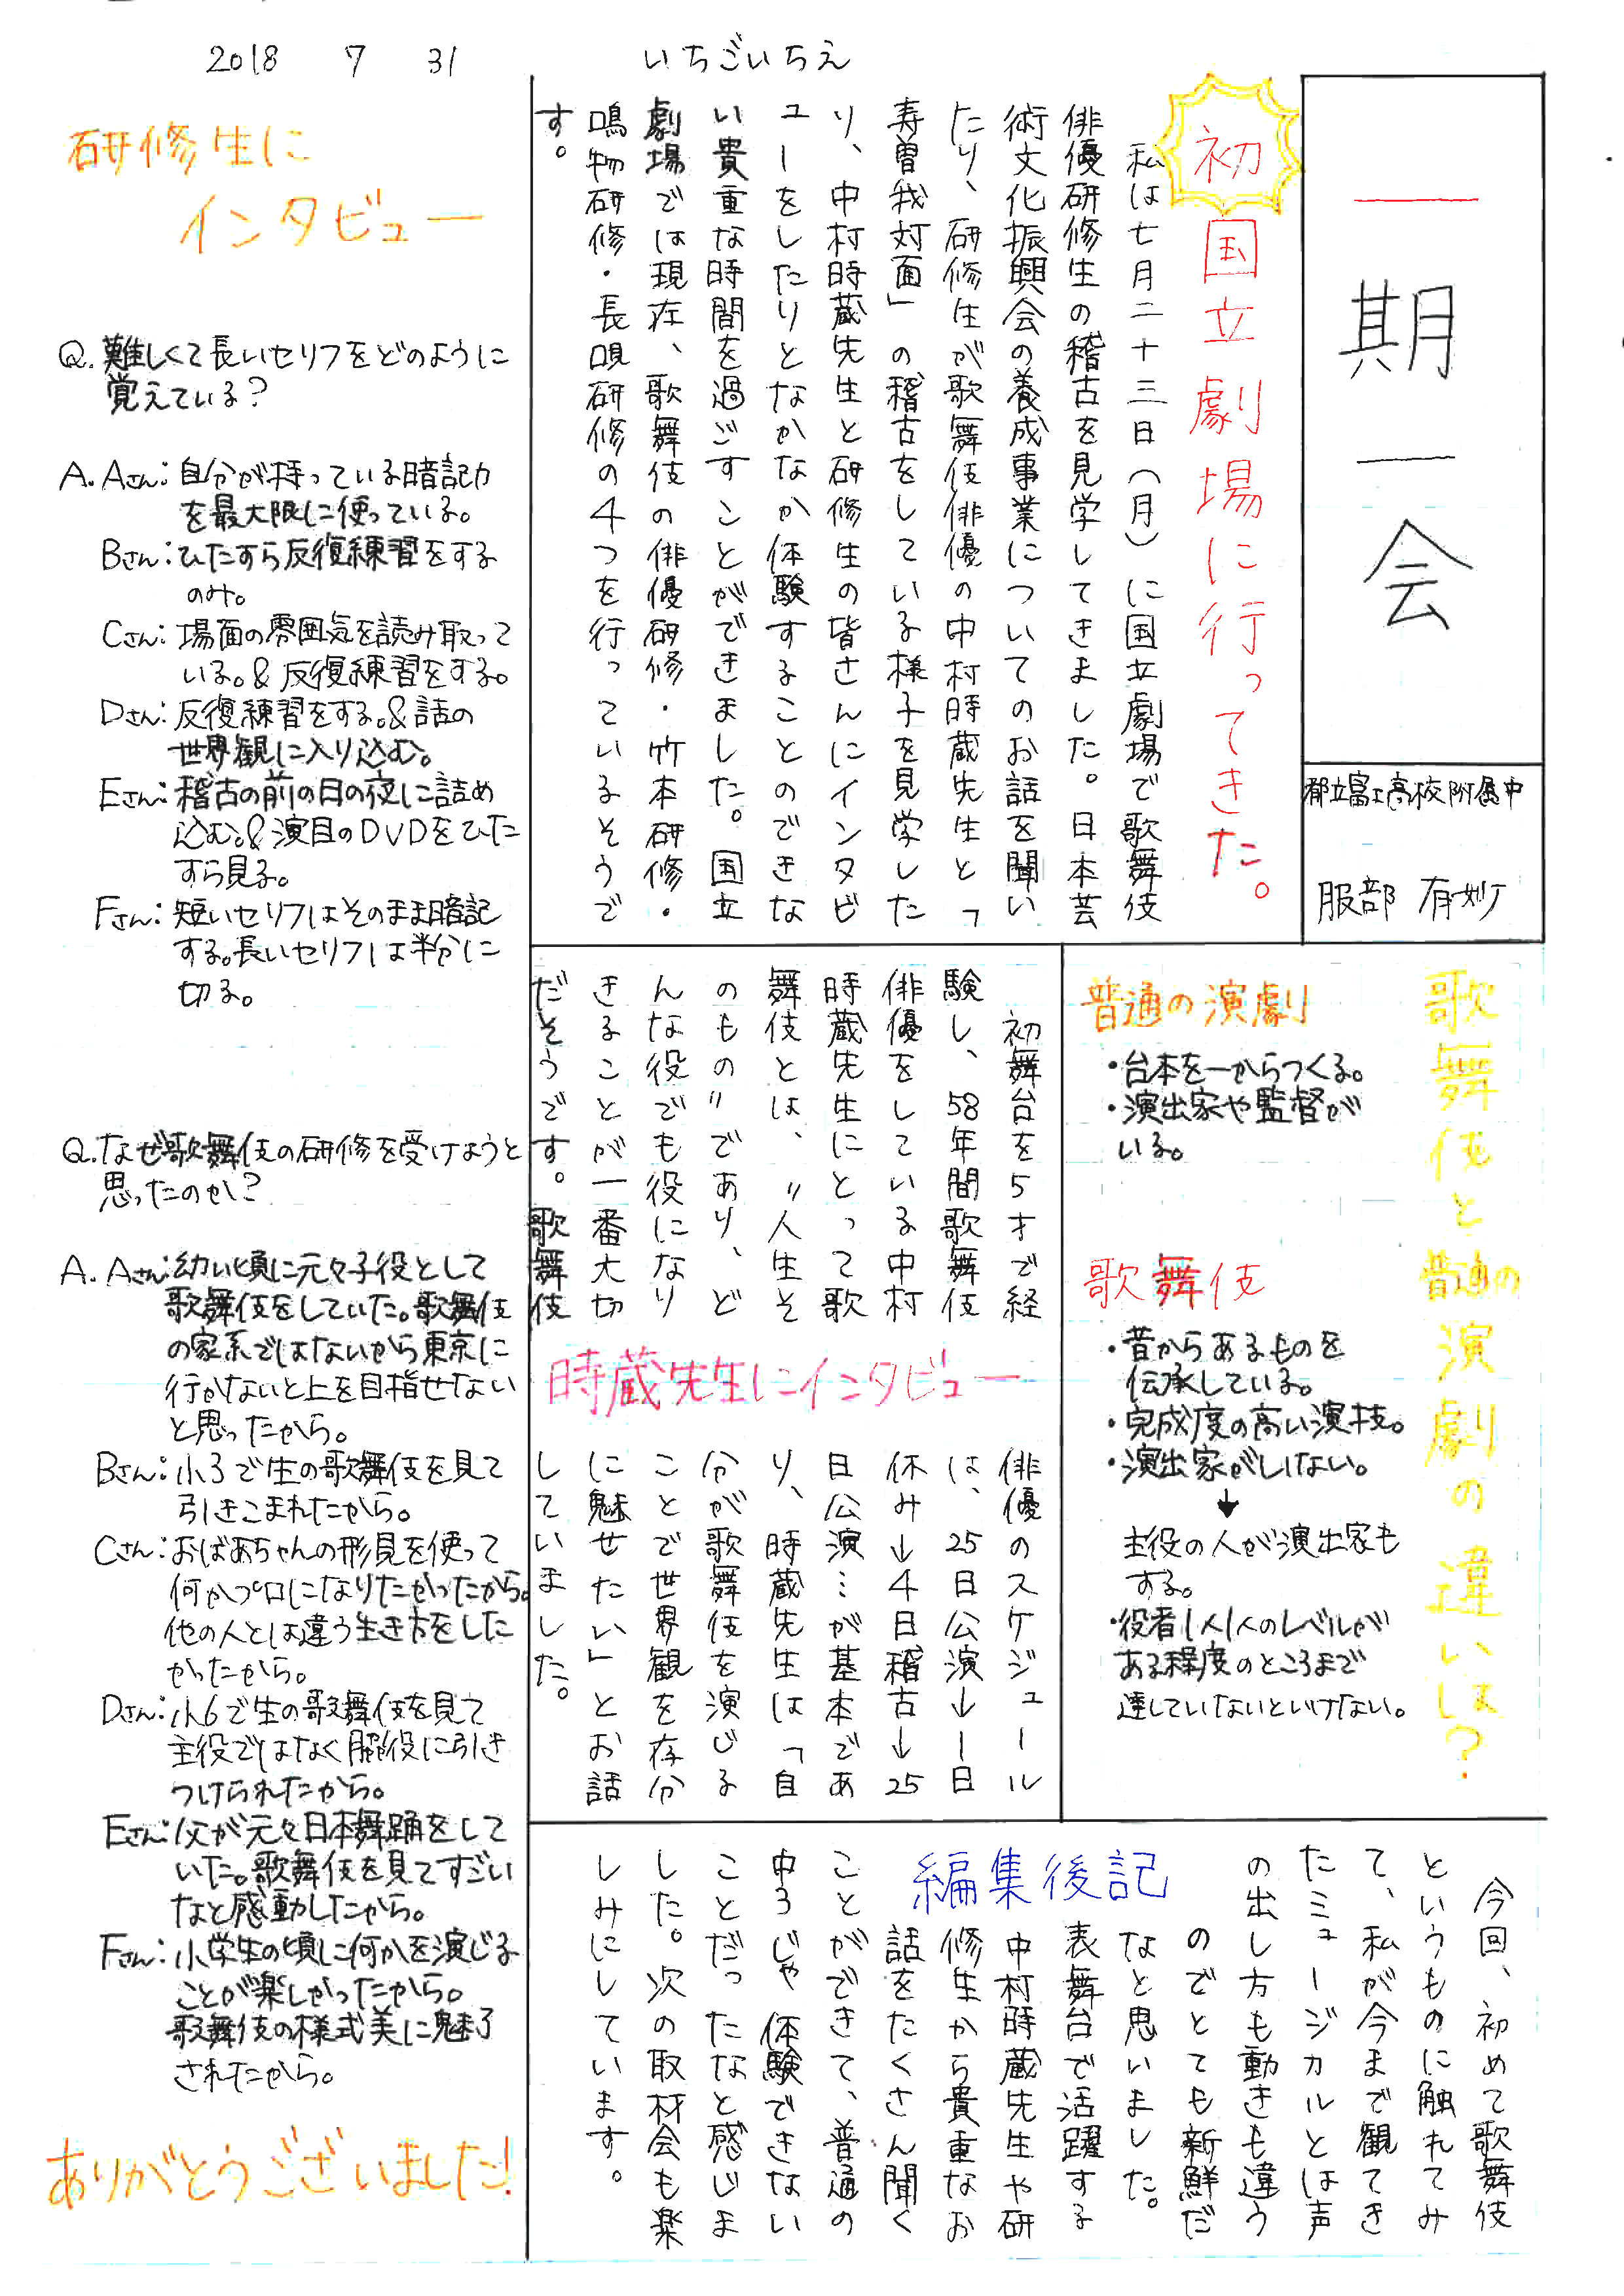 2018 7 31
いちごいちえ
一期一会
都立富士高校附属中
服部 有妙
初国立劇場に行ってきた。
私は七月二十三日(月)に国立劇場で歌舞伎
俳優研修生の稽古を見学してきました。日本芸
術文化振興会の養成事業についてのお話を聞い
たり、研修生が歌舞伎俳優の中村時蔵先生と「
寿曽我対面」の稽古をしている様子を見学した
り、中村時蔵先生と研修生の皆さんにインタビ
ューをしたりとなかなか体験することのできな
い貴重な時間を過ごすことができました。国立
劇場では現在、歌舞伎の俳優研修・竹本研修・
鳴物研修・長唄研修の4つを行っているそうで
す。
歌舞伎と普通の演劇の違いは?
普通の演劇
・台本を一からつくる。
・演出家や監督が
いる。
歌舞伎
・昔からあるものを
伝承している。
・完成度の高い演技。
・演出家がいない。
↓
主役の人が演出家も
する。
・役者1人1人のレベルが
ある程度のところまで
達していないといけない。
時蔵先生にインタビュー
初舞台を5才で経
験し、58年間歌舞伎
俳優をしている中村
時蔵先生にとって歌
舞伎とは、〃人生そ
のもの〃であり、ど
んな役でも役になり
きることが一番大切
だそうです。歌舞伎
俳優のスケジュール
は、25日公演→1日
休み→4日稽古→25
日公演…が基本であ
り、時蔵先生は「自
分が歌舞伎を演じる
ことで世界観を存分
に魅せたい」とお話
していました。
編集後記
今回、初めて歌舞伎
というものに触れてみ
て、私が今まで観てき
たミュージカルとは声
の出し方も動きも違う
のでとても新鮮だ
なと思いました。
表舞台で活躍する
中村時蔵先生や研
修生から貴重なお
話をたくさん聞く
ことができて、普通の
中3じゃ体験できない
ことだったなと感じま
した。次の取材会も楽
しみにしています。
研修生に
インタビュー
Q.難しくて長いセリフをどのように
覚えている?
A.Aさん:自分が持っている暗記力
を最大限に使っている。
Bさん:ひたすら反復練習をする
のみ。
Cさん:場面の雰囲気を読み取って
いる。&反復練習をする。
Dさん:反復練習をする。&話の
世界観に入り込む。
Eさん:稽古の前の日の夜に詰め
込む。&演目のDVDをひた
すら見る。
Fさん:短いセリフはそのまま暗記
する。長いセリフは半分に
切る。
Q.なぜ歌舞伎の研修を受けようと
思ったのか?
A.Aさん:幼い頃に元々子役として
歌舞伎をしていた。歌舞伎
の家系ではないから東京に
行かないと上を目指せない
と思ったから。
Bさん:小3で生の歌舞伎を見て
引きこまれたから。
Cさん:おばあちゃんの形見を使って
何かプロになりたかったから。
他の人とは違う生き方をした
かったから。
Dさん:小6で生の歌舞伎を見て
主役ではなく脇役に引き
つけられたから。
Eさん:父が元々日本舞踊をして
いた。歌舞伎を見てすごい
なと感動したから。
Fさん:小学生の頃に何かを演じる
ことが楽しかったから。
歌舞伎の様式美に魅了
されたから。
ありがとうございました!